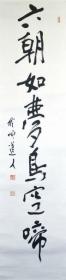 六朝如夢鳥空啼
道人